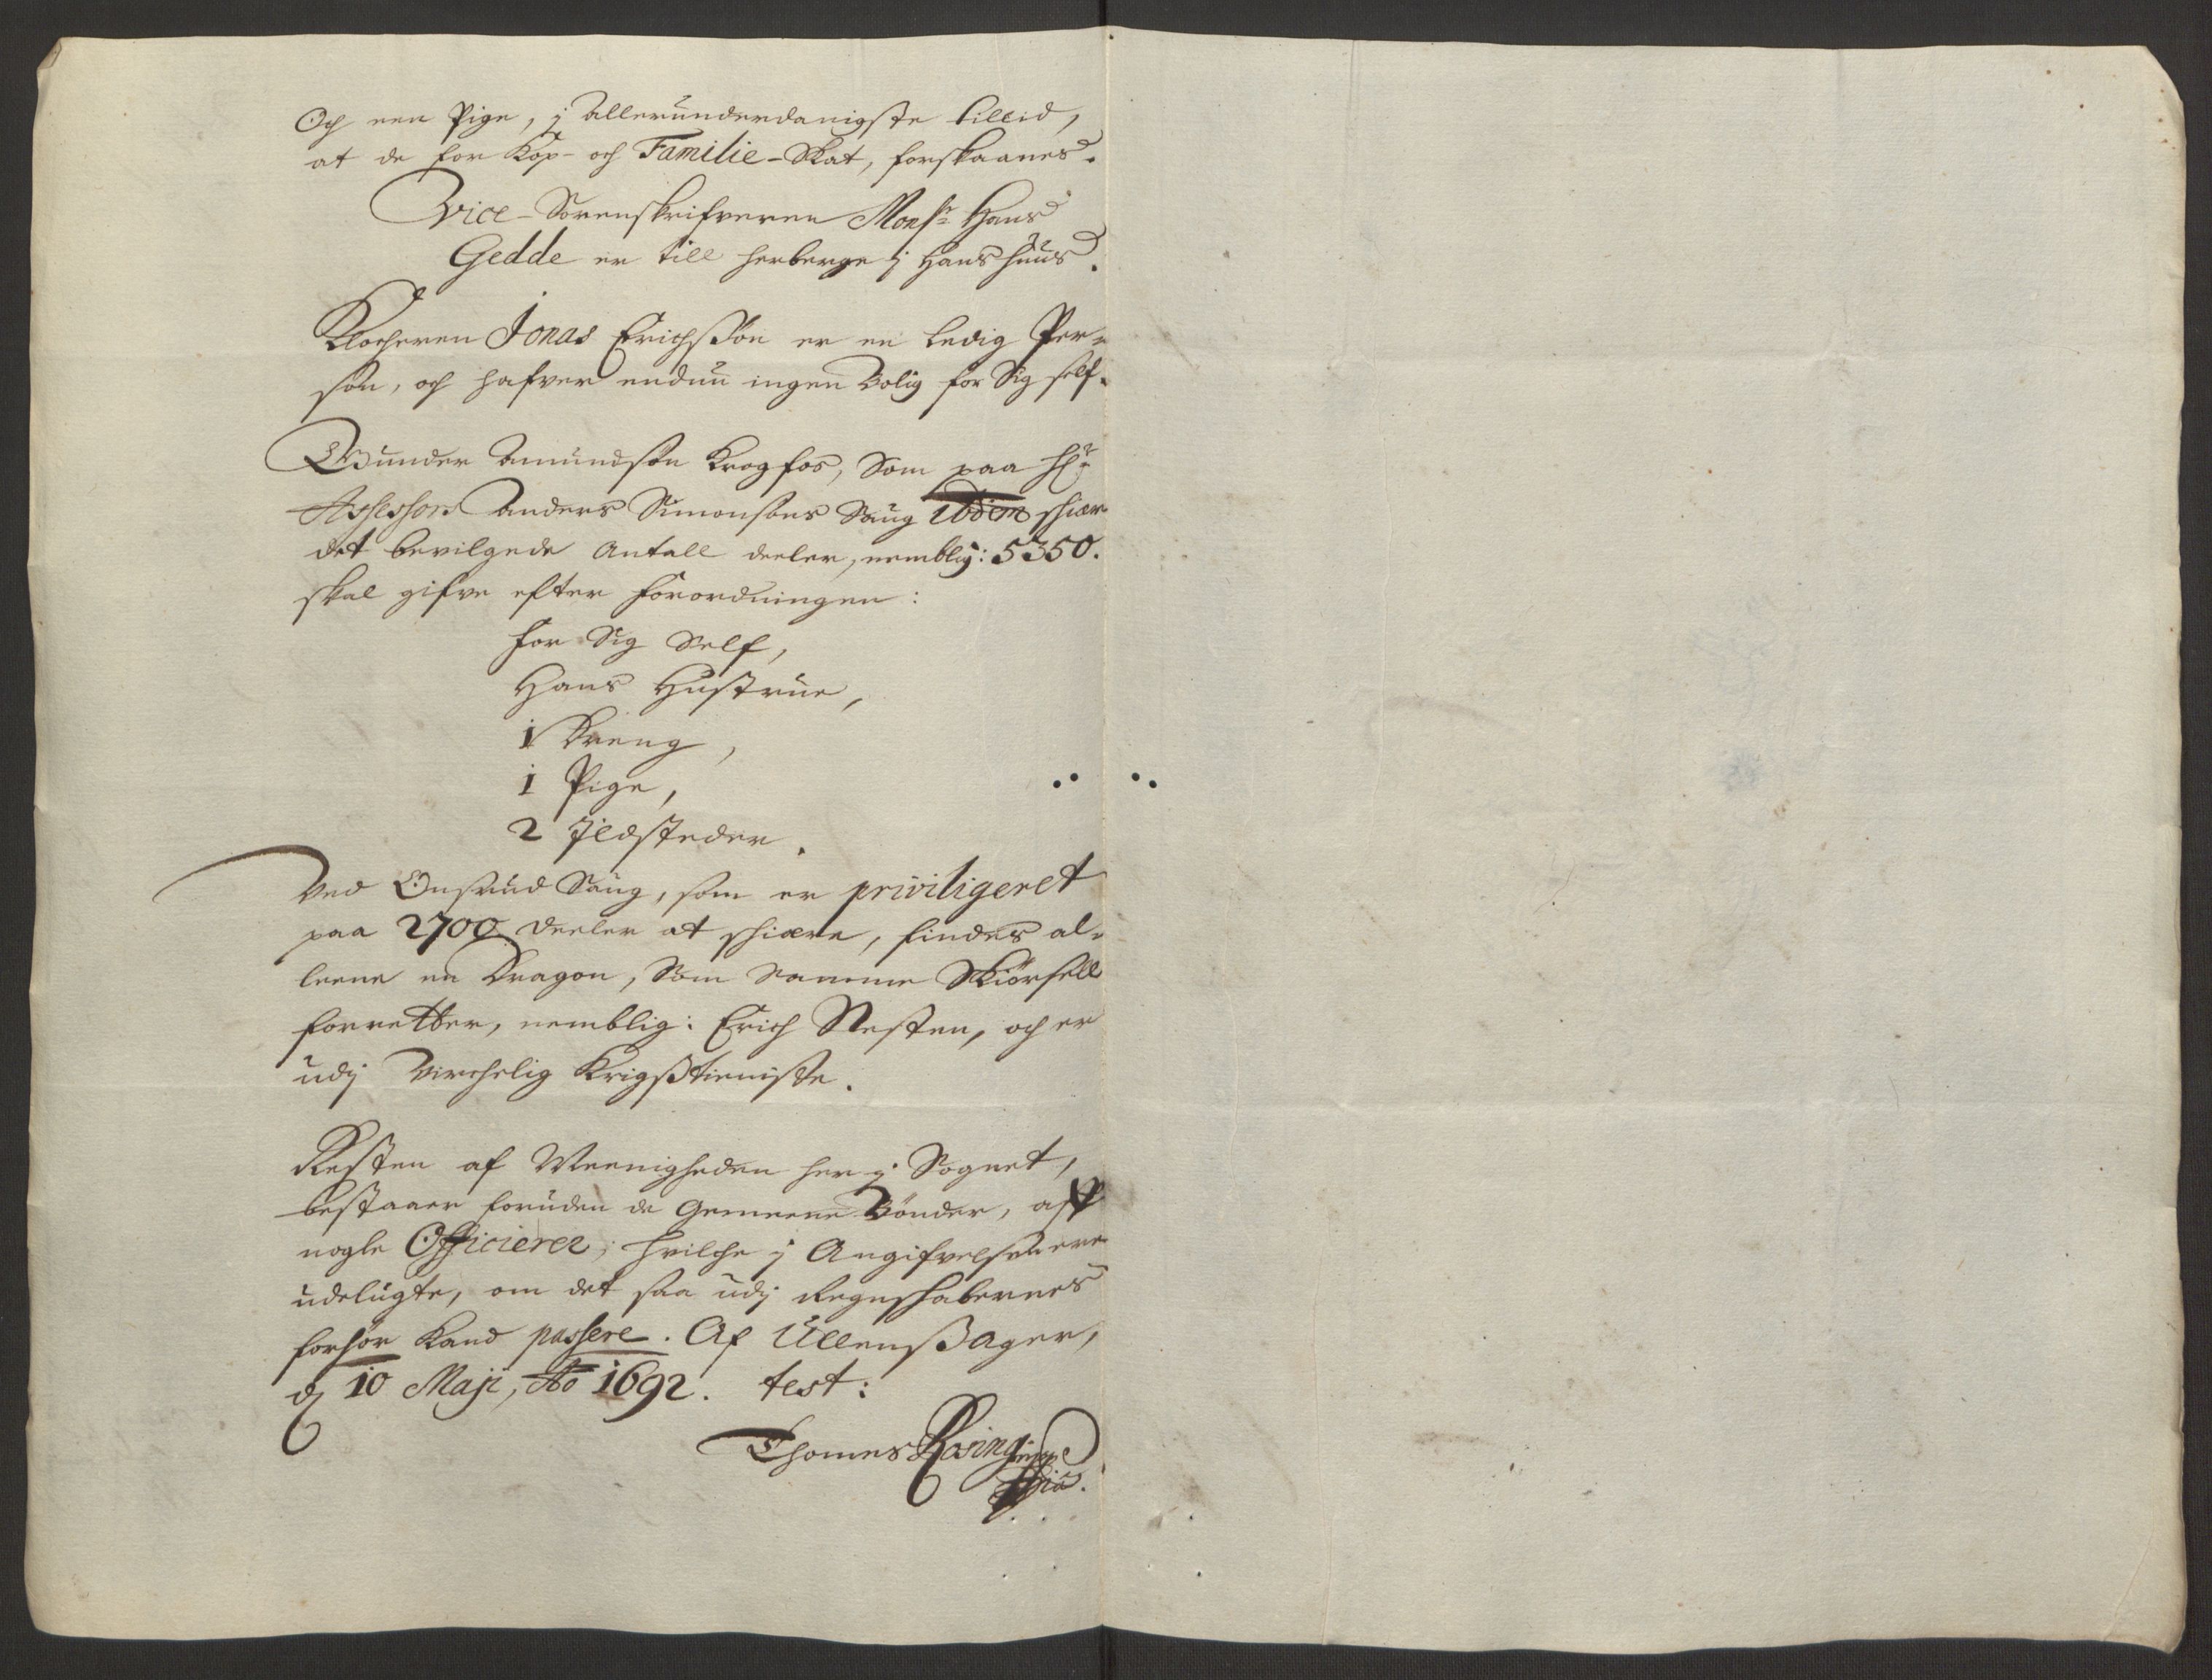 Och een Pige, j allerunderdanigste tillid,
at de for Kop- och Familie-Skat, forskaanes.
Vice-Sorenskrifveren Monsr Hans
Gedde er till herberge j Hans huus.
Klocheren Jonas Erichsson er en ledig Per-
son, och hafver enduu ingen Bolig for Sig self.
Gunder Amundsøn Krogfos, Som paa Hr
Assessors Anders Simonsøns Saug ibdem skiær
det bevilgede Antall deeler, nemblig: 5350.
skal gifve efter forordningen:
for Sig Self,
Hans Hustrue,
1 Dreng,
1 Pige,
2 Ildsteder.
Ved Onsrud Saug, som er priviligeret
paa 2700 deeler at skiære, findes al-
leene en Dragon, Som samme Skiørsell
forretter, nemblig: Erich Nesten, och er
udj Virchelig Krigstieniste.
Resten af Meenigheden her j Sognet,
bestaaer foruden de Gemeene Bønder, aff
nogle Officierer, hvilche j Angifvelsen ere
udelugte, om det saa udj Regnskabernes
forhør kand passere. Af Ullensager,
d 10 Maji, Ao 1692. test:
Thomes Rosing